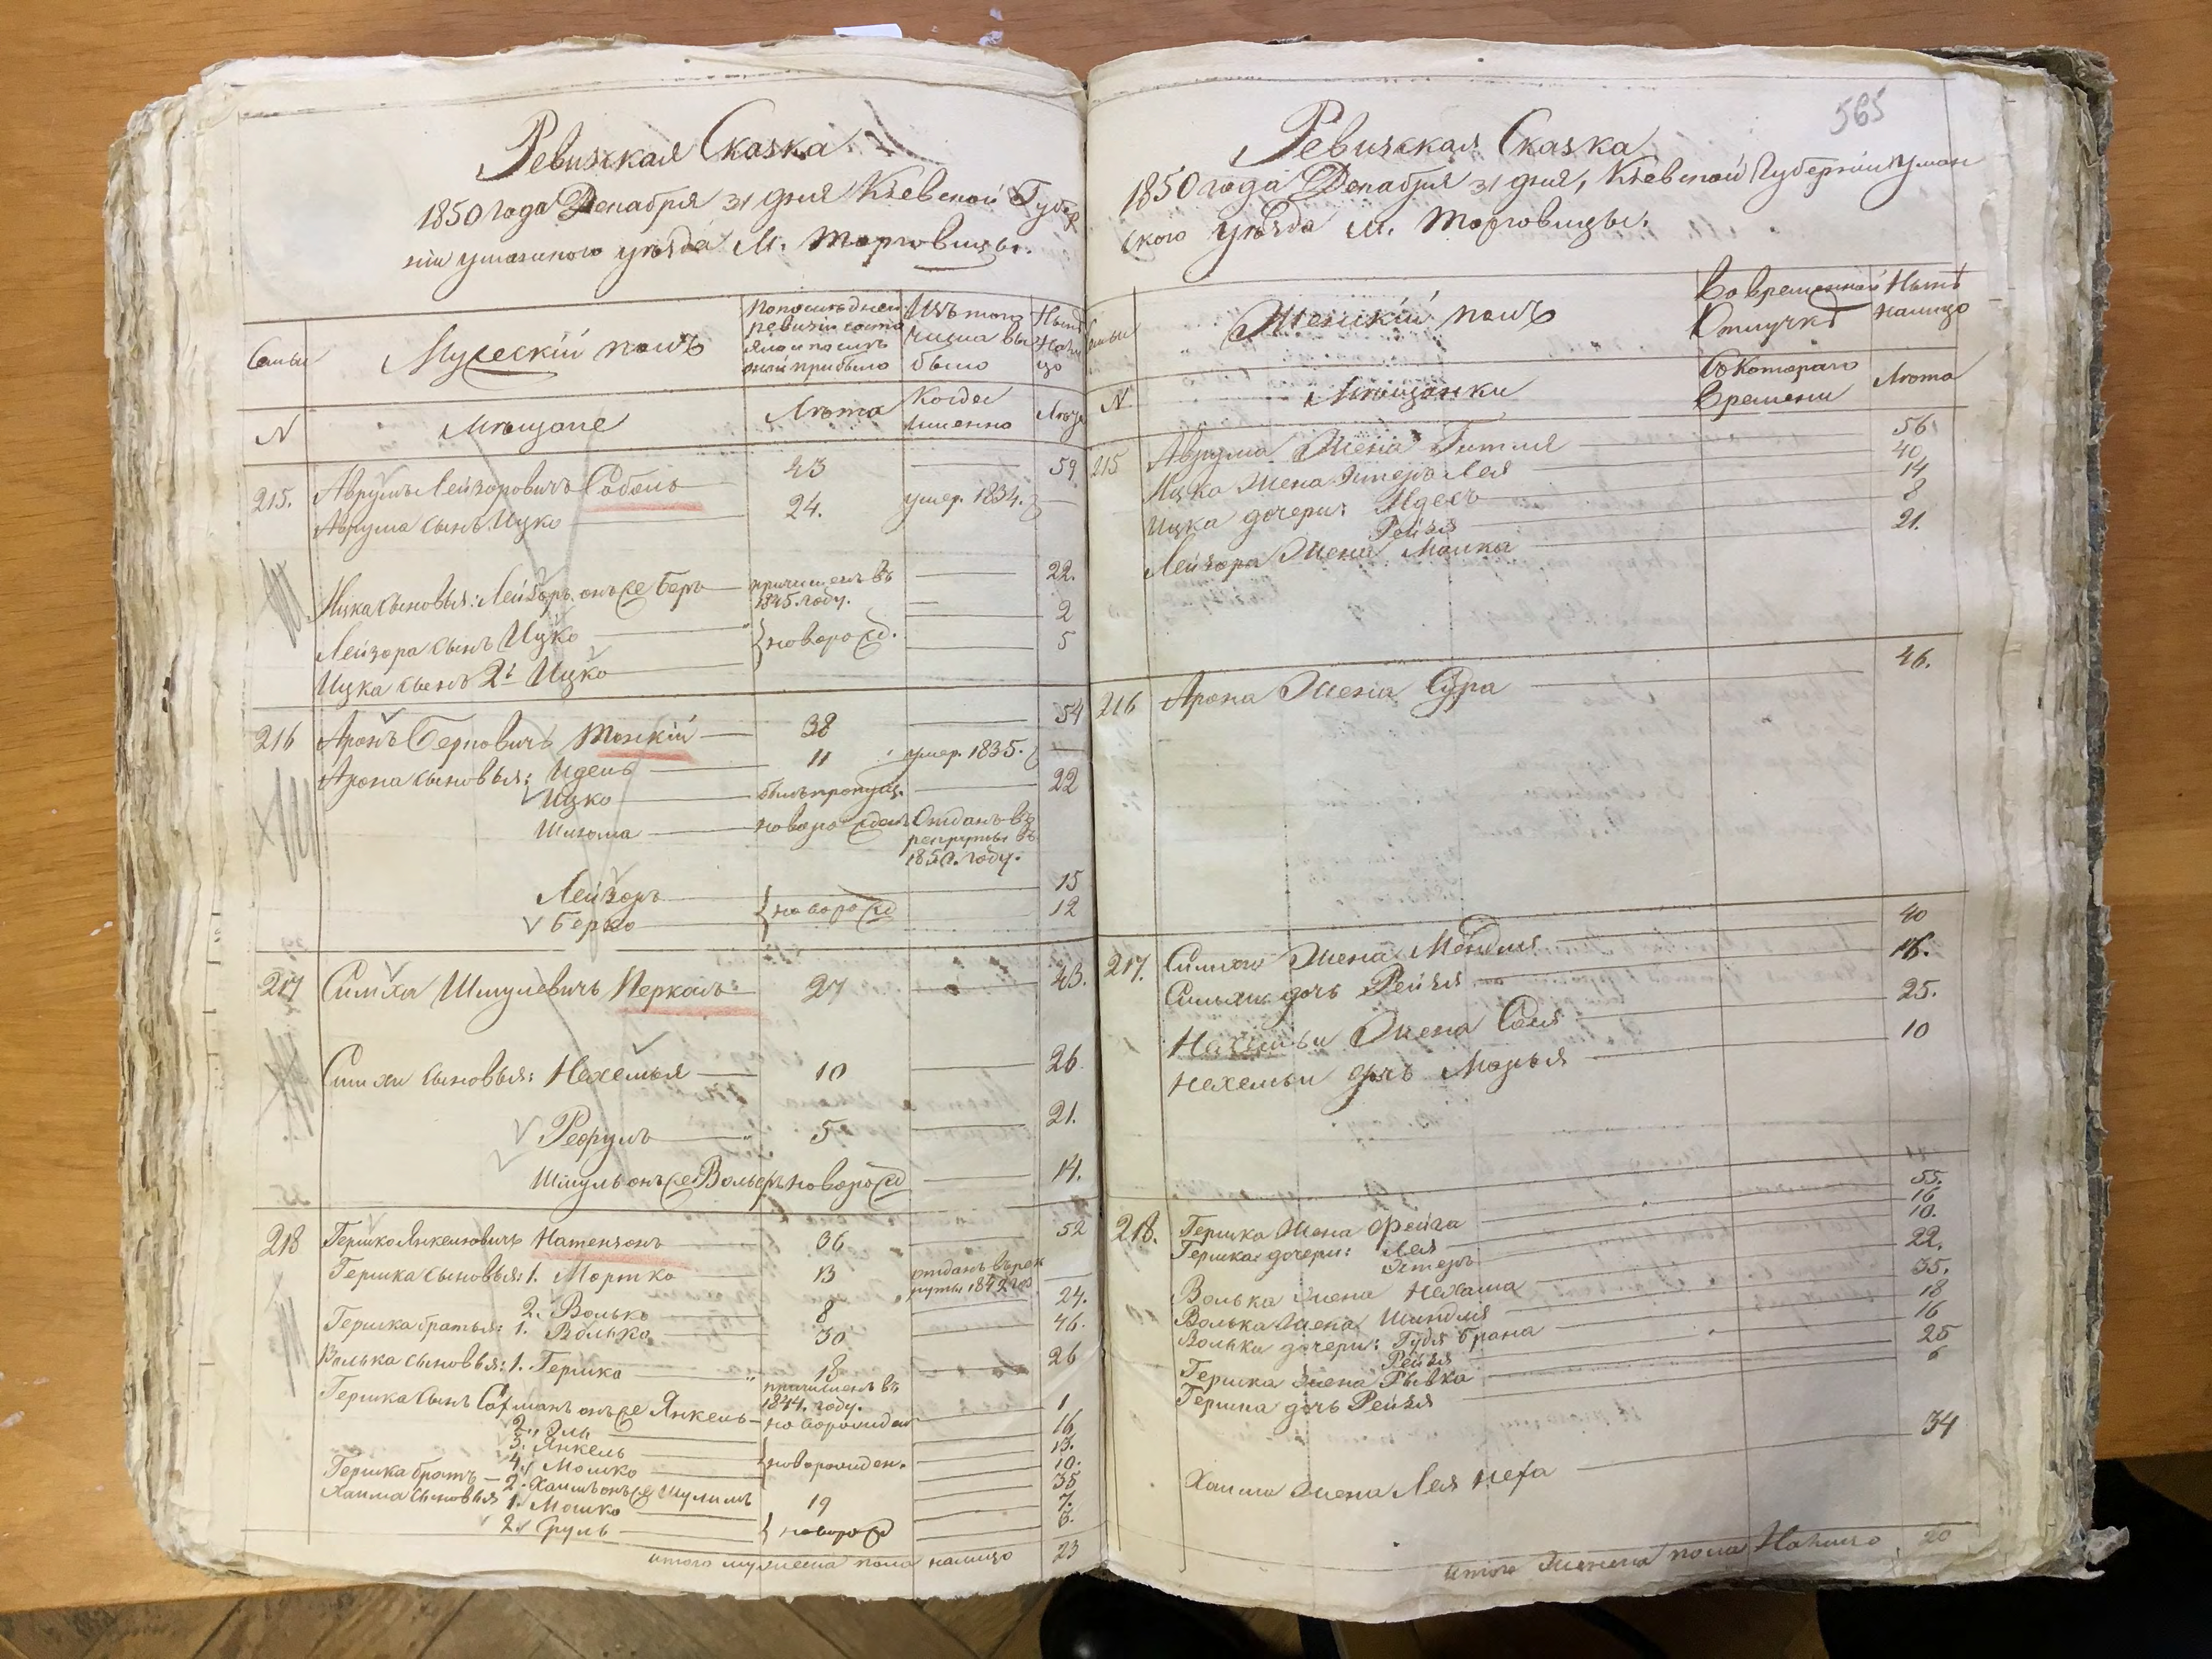 Ревизская Сказка
1850 года Декабря 31 дня Кіевской Губер
ніи уманского уѣзда М. Торговицы.
Семьи
Мужескій полъ
По послѣдней
ревизіи состо
яло и послѣ
оной прибыло
Изъ того
числа вы
было
Нынѣ
нали
цо
N
Мѣщане
Лѣта
Когда
Именно
Лѣта
215. Аврумъ Лейзоровичъ Соболь 43 59
Аврума сынъ Ицко 24. умер. 1834.
Ицка сыновья: Лейзоръ онъ же Беръ причисленъ въ 22.
1845. году.
Лейзора сынъ Ицко 2
новорожд.
Ицка сынъ 2й Ицко 5
216 Аронъ Берковичъ 38 54
Арона сыновья: Идель 11 умер. 1835.
Ицко былъ пропущ. 22
Шлома новорожден Отданъ въ
рекруты въ
1850. году.
Лейзоръ 15
новорожд
Берко 12
217 Симха Шмулевичъ Перкаль 27 43.
Симхи сыновья: Нехемья 10 26
Рефулъ 5 21.
Шмуль онъ же Вольфъ новорожд 14.
218 Гершко Янкелевичъ Натензонъ 36 52
Гершка сыновья: 1. Мортко 13 отданъ въ рек
руты 1842 год
2. Волько 8 24.
Гершка братья: 1. Волько 30 46.
Волька сыновья: 1. Гершко 13 26
причисленъ въ
1844. году.
Гершка сынъ онъ же Янкель новорожден 1
2. Эль 16
3. Янкель 13.
новорожден.
4. Мошко 10.
Гершка братъ — 2. Хаимъ онъ же Шулимъ 19 35
Хаима сыновья 1. Мошко 7.
новорожд
2. Сруль 6.
итого мужеска пола налицо 23
565
Ревизская Сказка
1850 года Декабря 31 дня, Кіевской Губерніи Уман
ского уѣзда м. Торговицы.
Семьи
Женскій полъ
Во временной
Отлучкѣ
Нынѣ
налицо
N
Мѣщанки
Съ Котораго
Времени
Лѣта
215 Аврума Жена Гитля 56
Ицка Жена Эстеръ Лея 40
Ицка дочери: Идесъ 14
Рейзя 8
Лейзора Жена Малка 21.
216 Арона Жена Сура 46.
217. Симхи Жена Мондля 40
Симхи дочь Рейзя 16.
Нехемьи Жена Сося 25.
Нехемьи дочь Марья 10
218. Гершка Жена Фейга 55.
Гершка дочери: Лея 16
Эстеръ 10.
Волька Жена Нехама 22.
Волька Жена Шиндля 35.
Волька дочери: Гудя Брана 18
Рейзя 16
Гершка Жена Рывка 25
Гершка дочь Рейзя 6
Хаима Жена Лея Неха 34
итого Женска пола Налицо 20